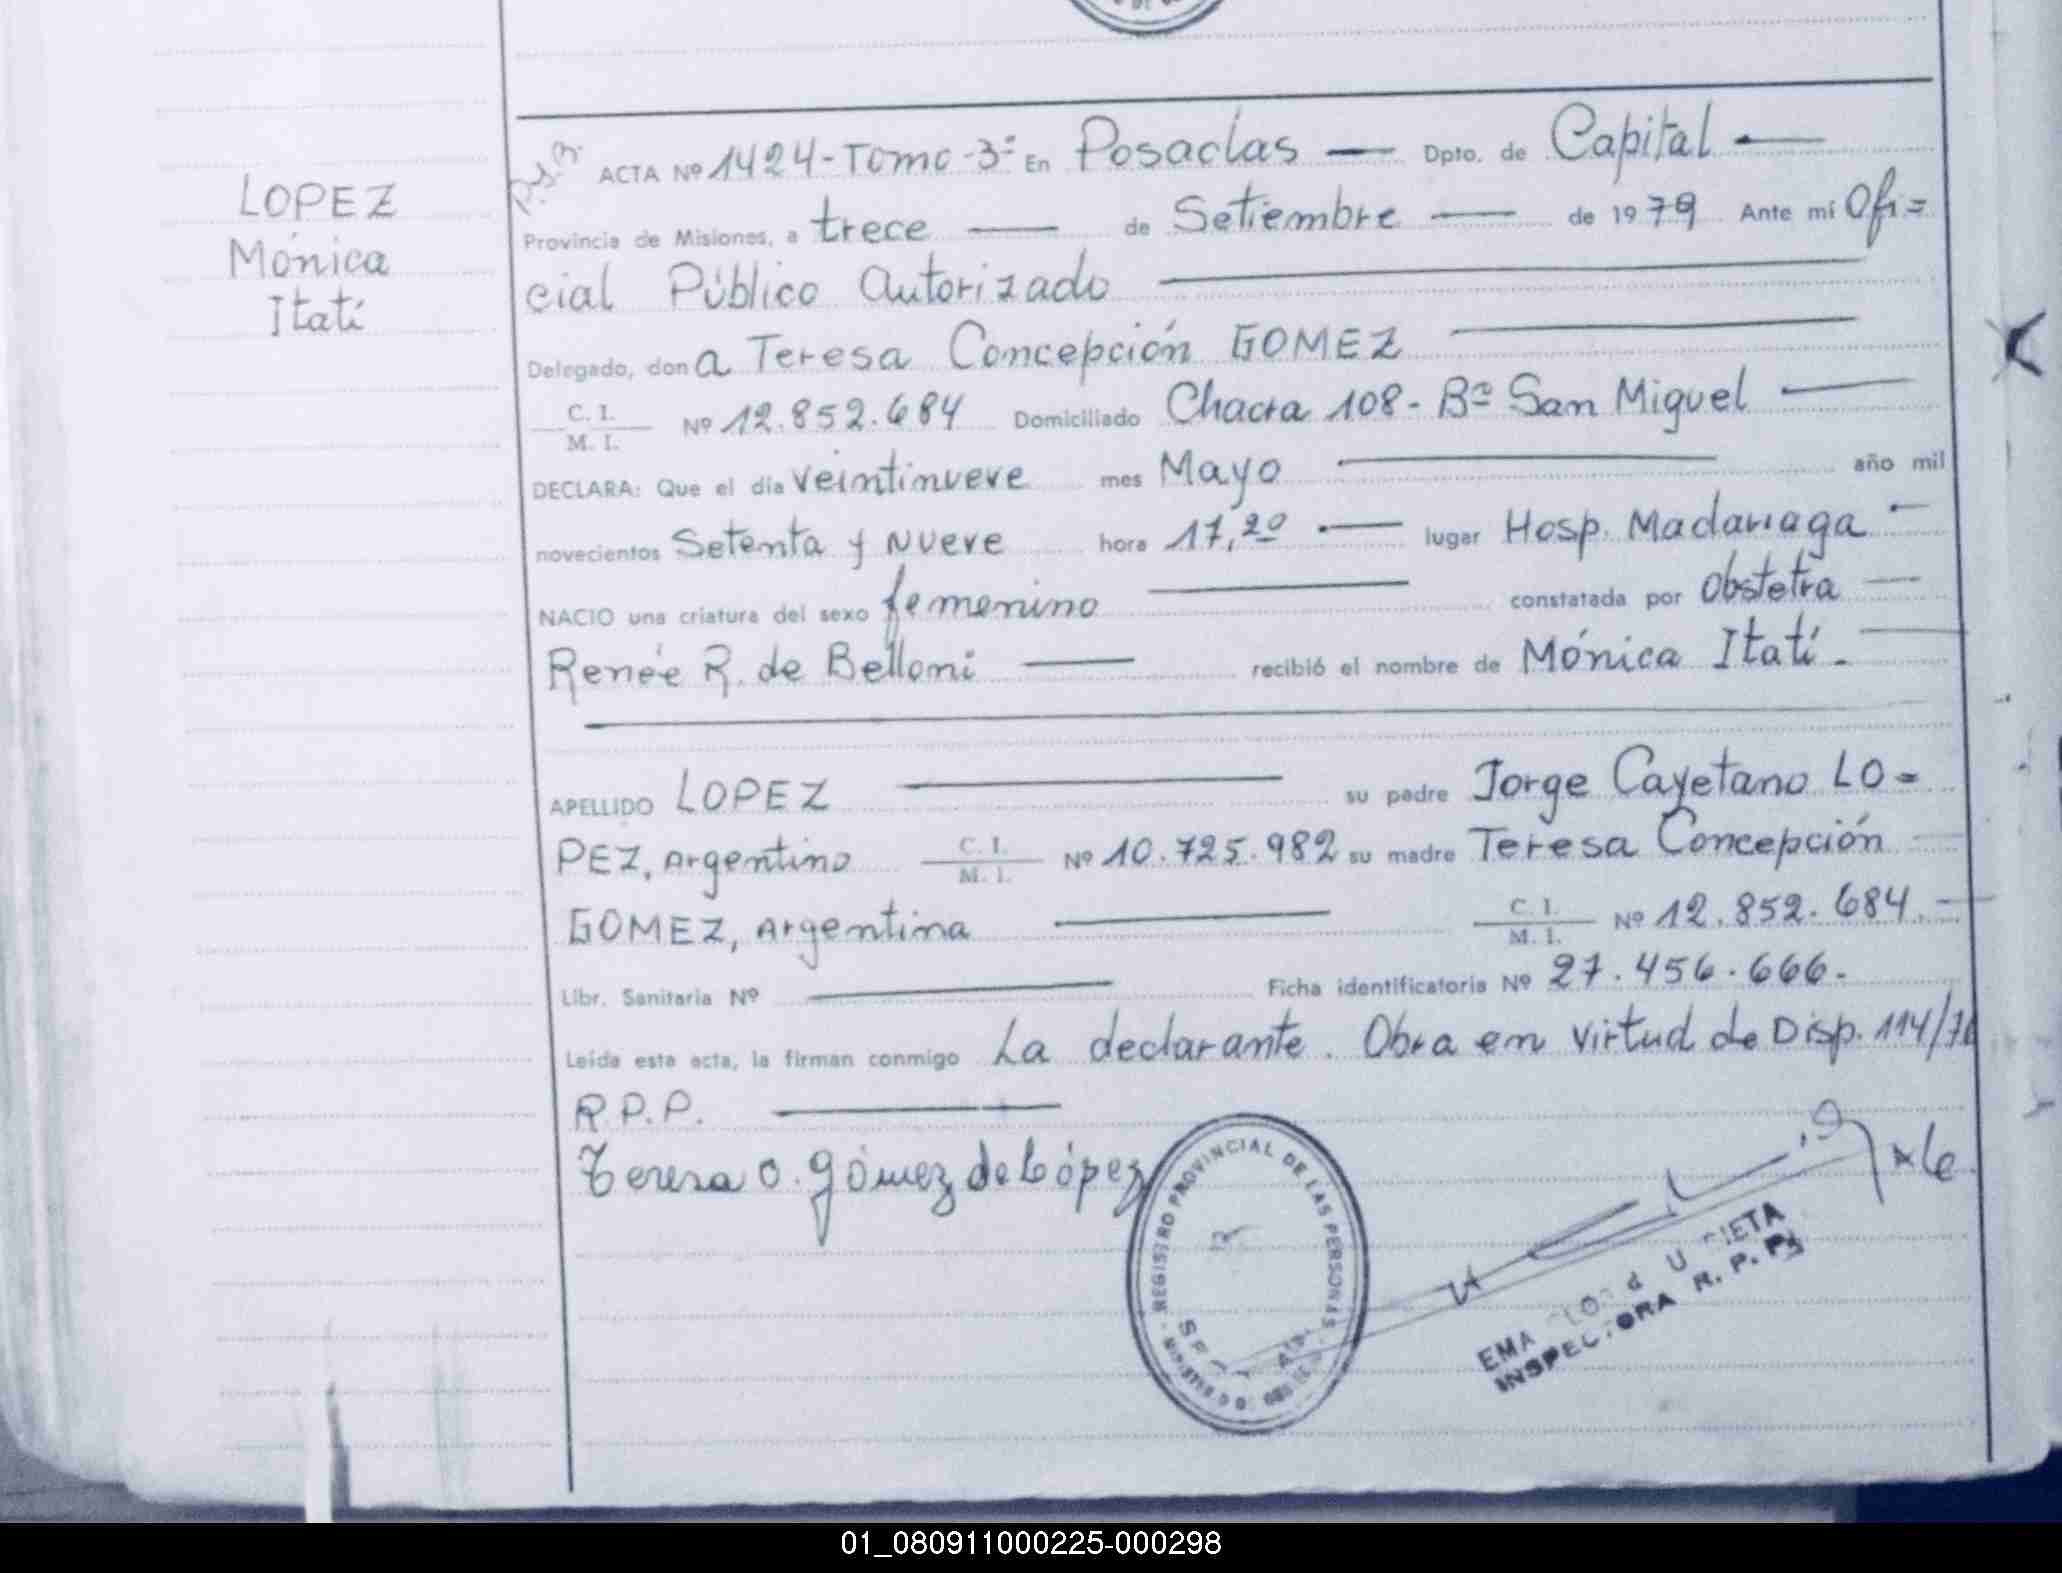 LOPEZ
Mónica
Itatí
ACTA Nº 1424-Tomo-3º En Posadas — Dpto. de Capital —
Provincia de Misiones, a trece — de Setiembre — de 1979 Ante mí Ofi=
cial Público Autorizado —
Delegado, don a Teresa Concepción GOMEZ —
C. I.
M. I. Nº 12.852.684 Domiciliado Chacra 108- Bº San Miguel —
DECLARA: Que el día veintinueve mes Mayo — año mil
novecientos Setenta y Nueve hora 17,20 — lugar Hosp. Madariaga —
NACIO una criatura del sexo femenino — constatada por Obstetra —
Renée R. de Belloni — recibió el nombre de Mónica Itatí. —
APELLIDO LOPEZ — su padre Jorge Cayetano LO=
PEZ, Argentino C. I. M. I. Nº 10.725.982 su madre Teresa Concepción —
GOMEZ, Argentina — C. I. M. I. Nº 12.852.684. —
Libr. Sanitaria Nº — Ficha identificatoria Nº 27.456.666.
Leída esta acta, la firman conmigo La declarante. Obra en virtud de Disp. 114/76
R.P.P. —
Teresa C. Gómez de López
REGISTRO PROVINCIAL DE LAS PERSONAS
EMA
INSPECTORA R. P. P.
01_080911000225-000298